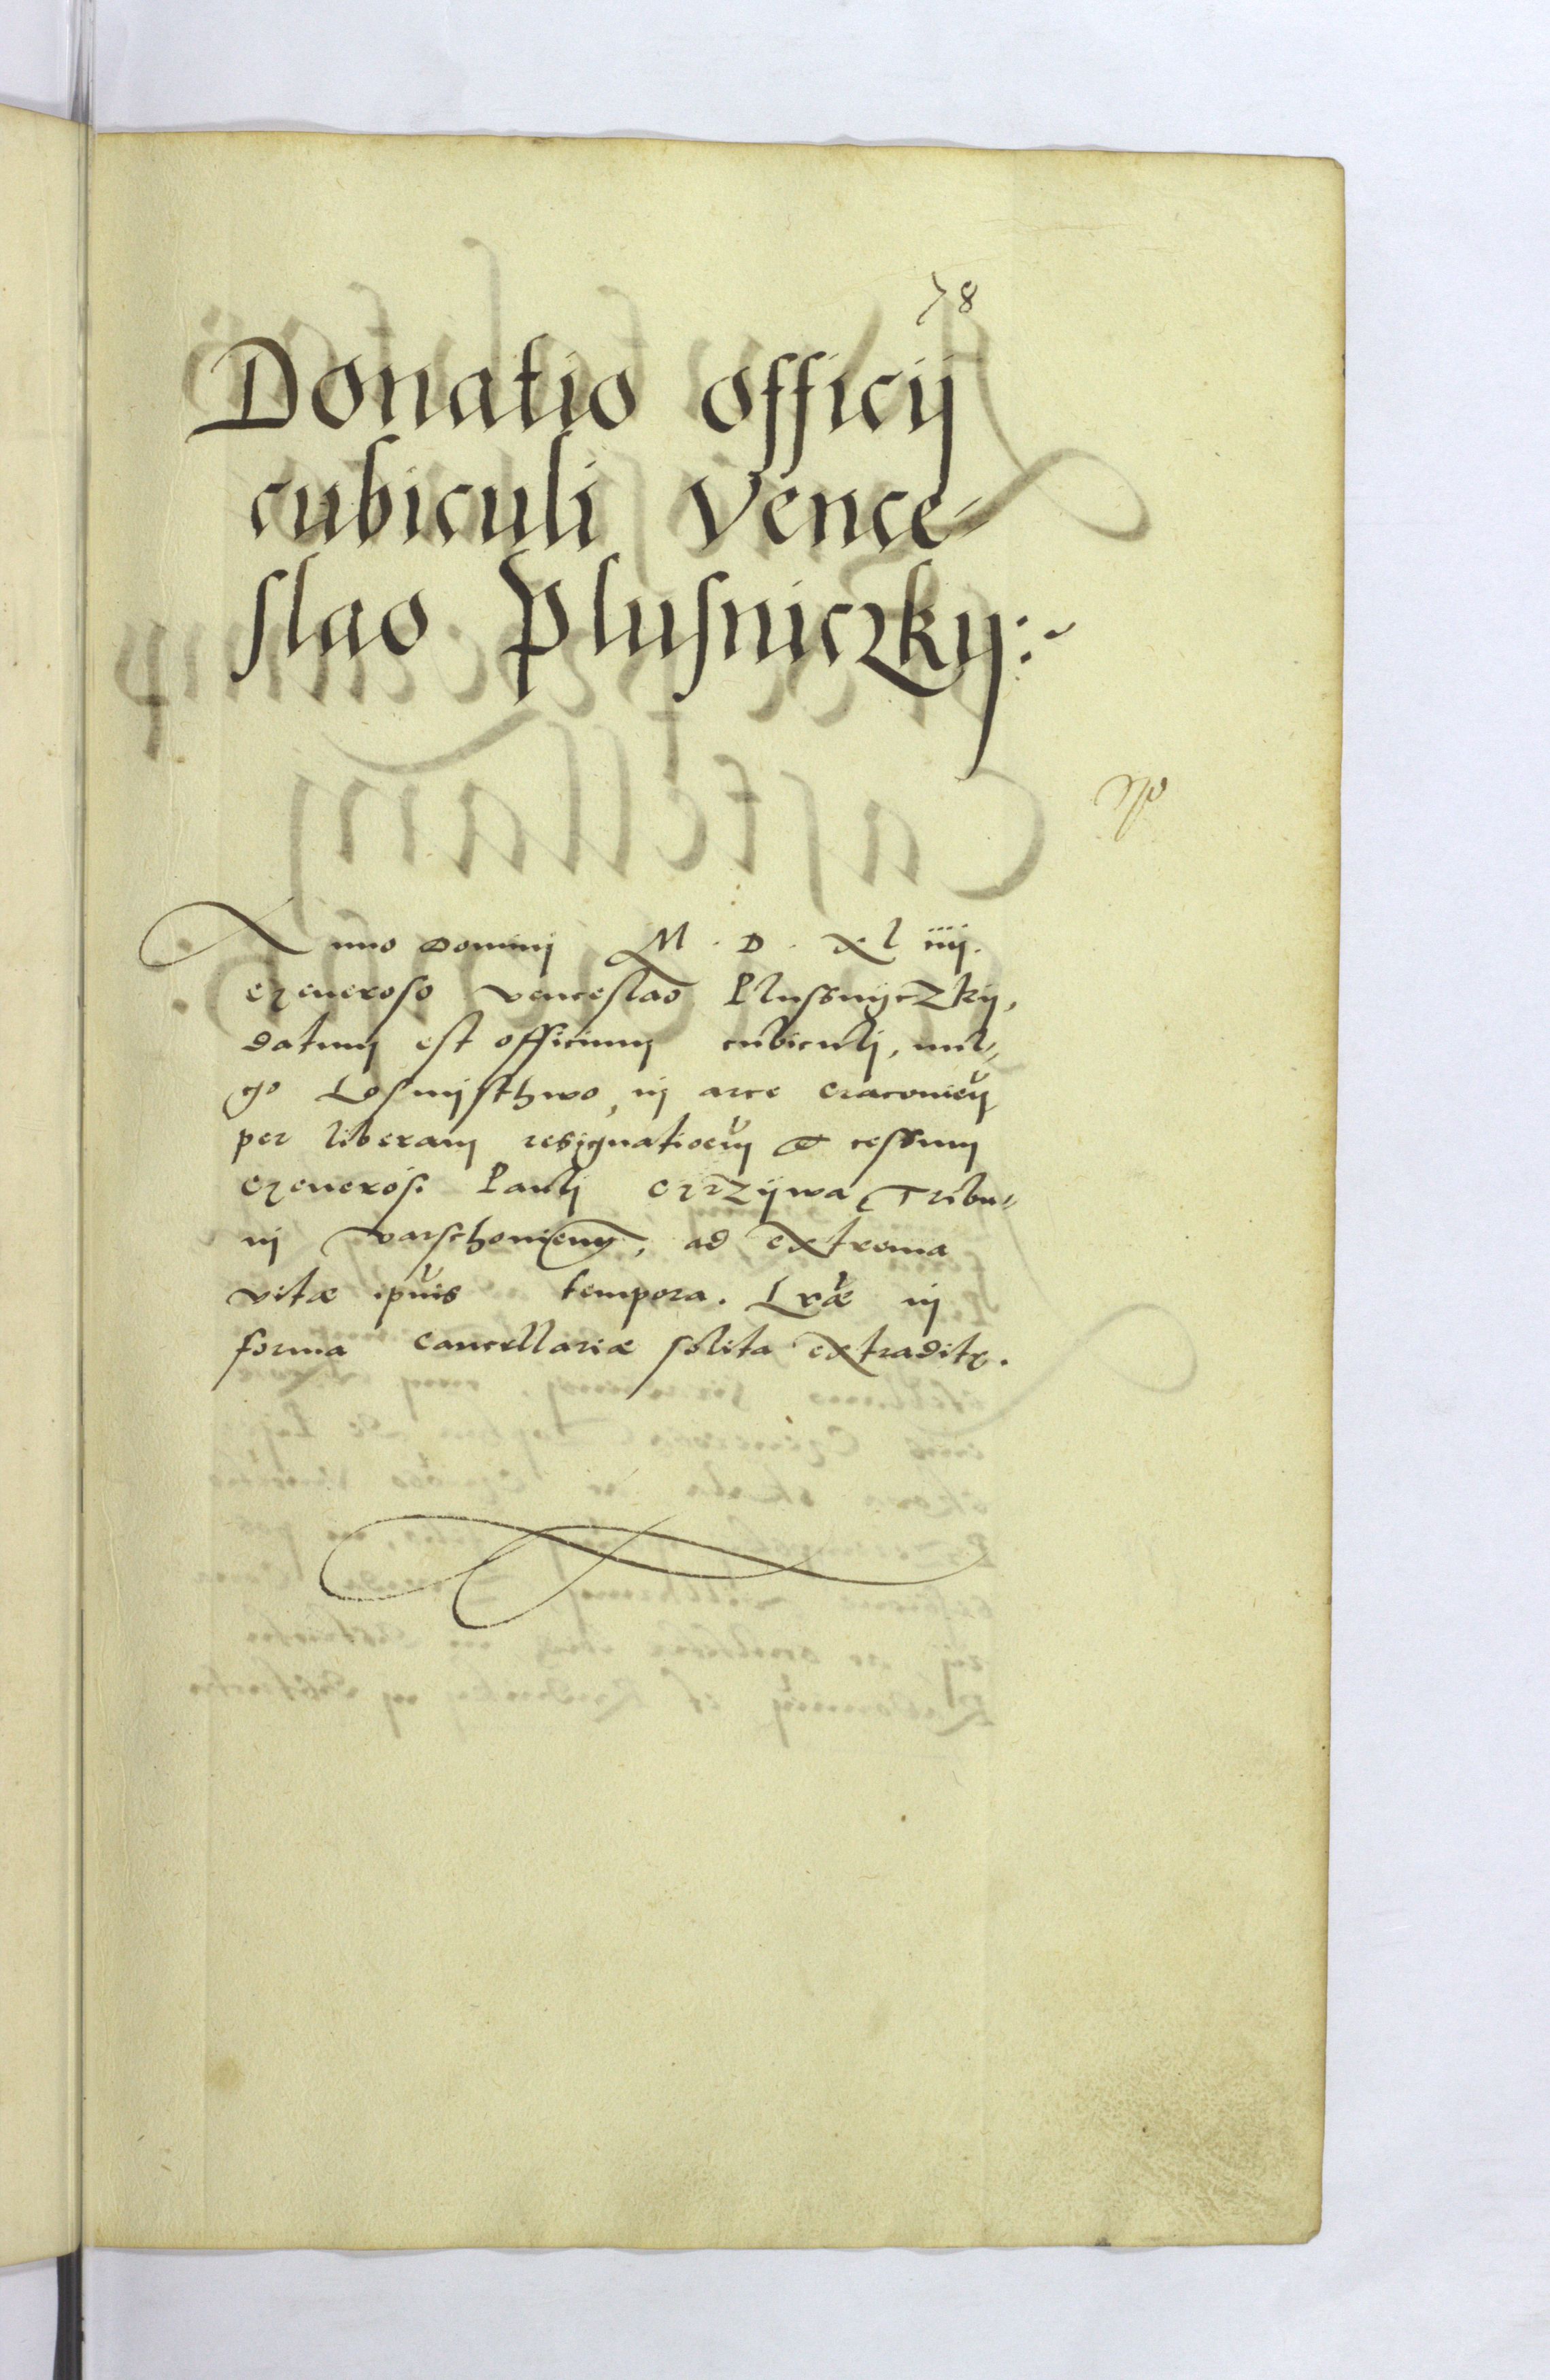 78
Donatio officij
cubiculi Vence-
slao Plusniczkij:~
Anno Dominj M. D. XL iiij.
Generoso Venceslao Plussnyczkij,
datum est officium cubiculj, vul-
go Losnijsthwo, in arce Cracovien
per liberam resignatioem et cessum
Generosi Paulj Grzijwa Tribu-
nj Varschoviens, ad extrema
vitæ ipius tempora. Lræ in
forma Cancellariæ solita extraditę.